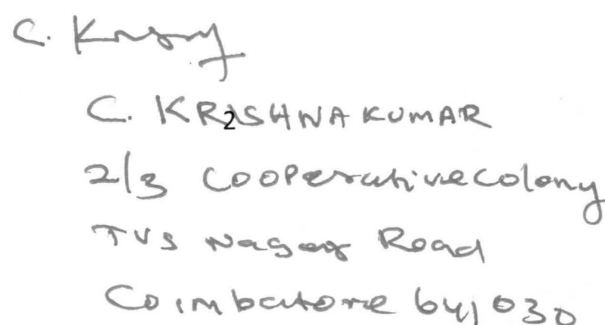 C. KRISHNAKUMAR
2
2/3 Cooperative colony
TVS Nagar Road
Coimbatore 641 030